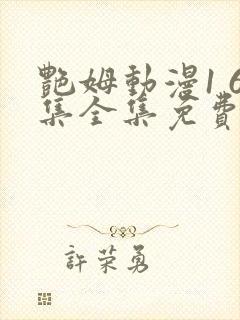 艷姆動漫1 6
集全集免費
許荣勇